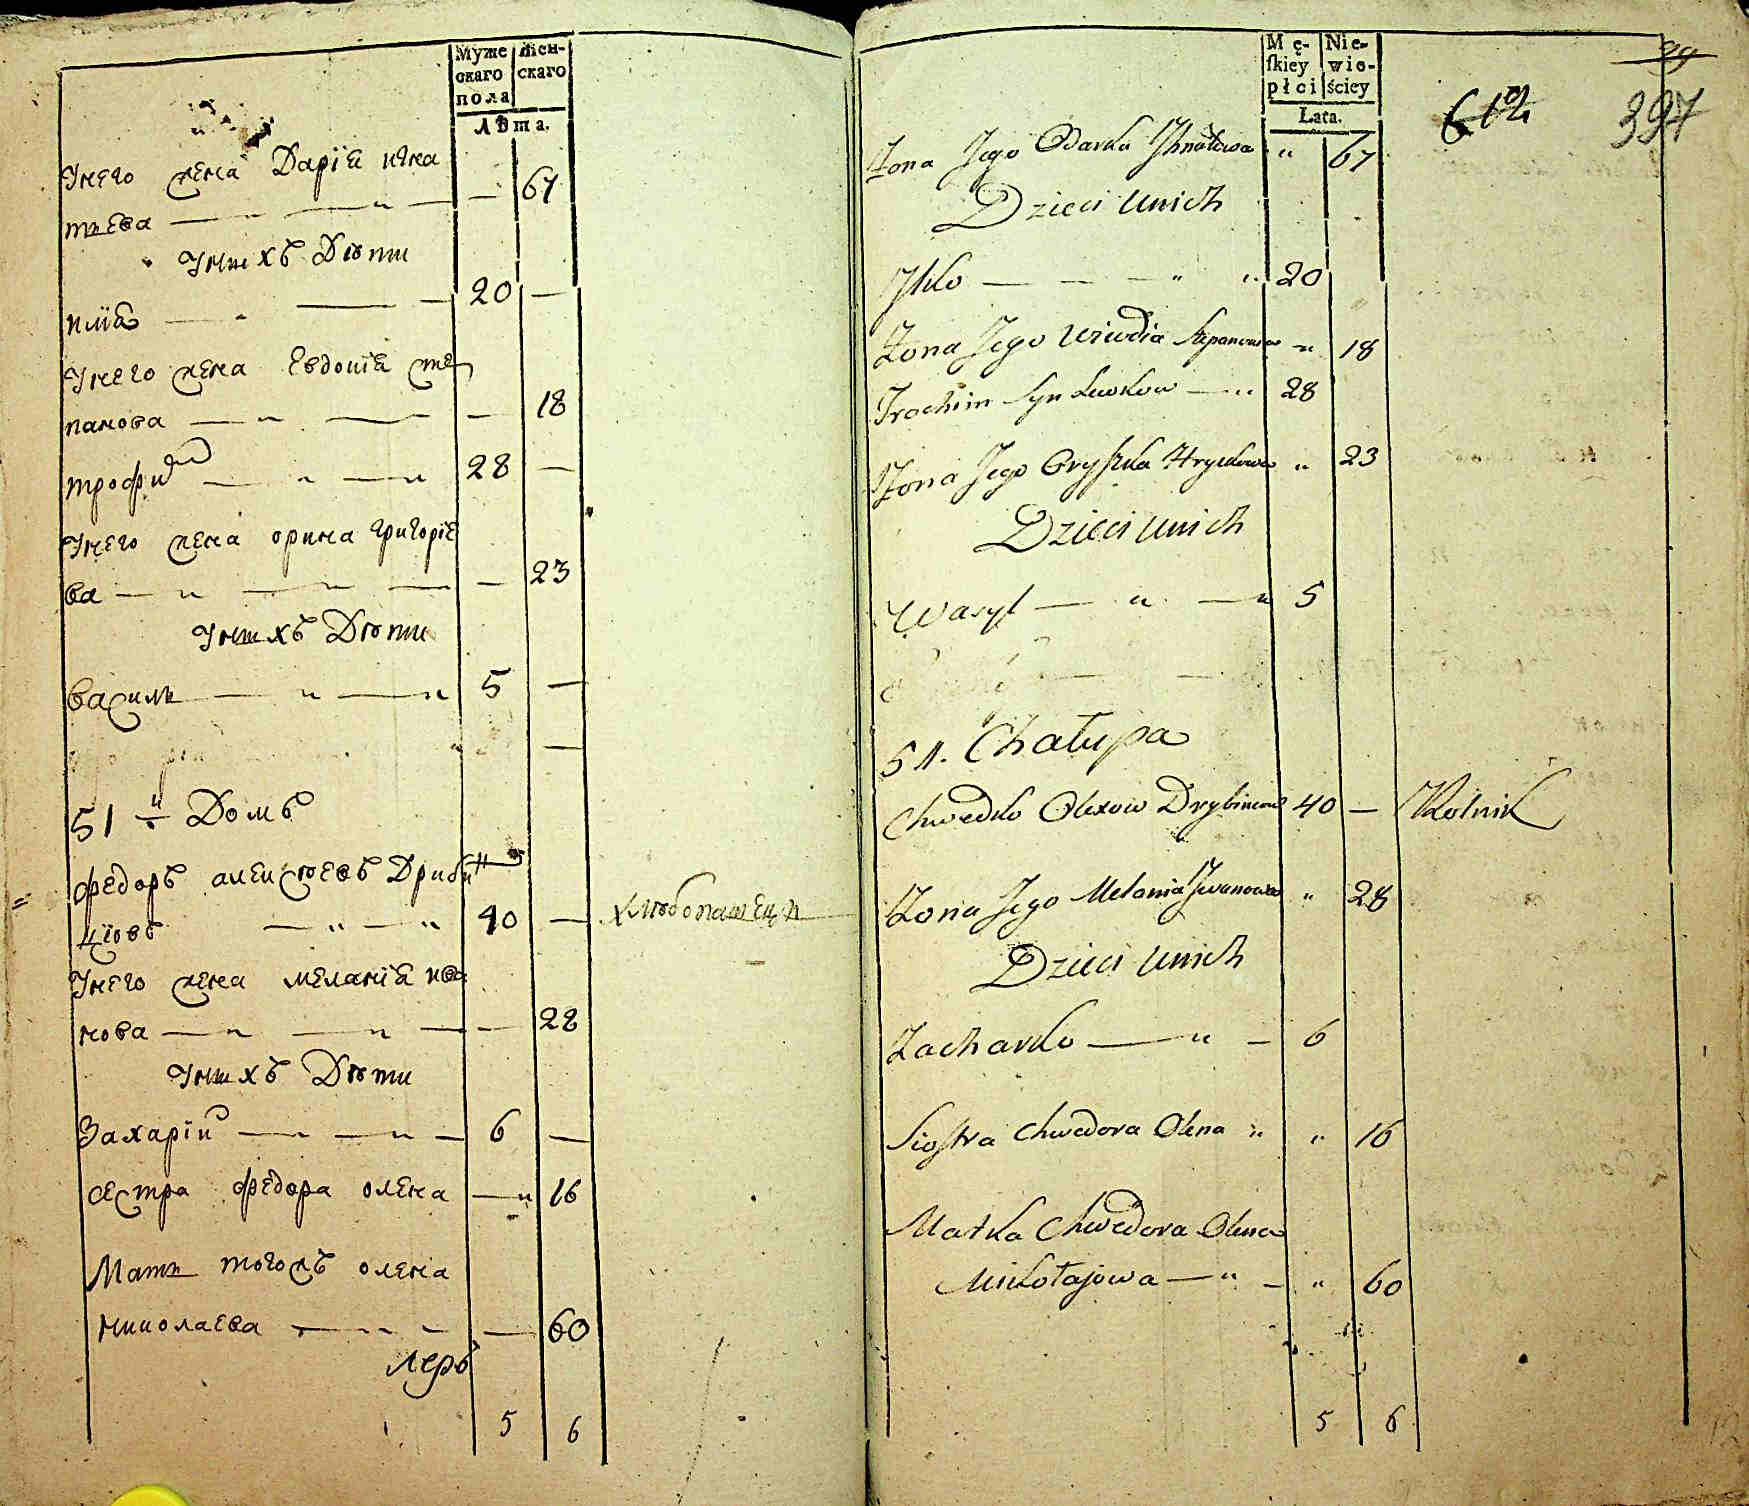 Муже
скаго
пола
Жен-
скаго
Лѣта.
Унего жена Дарїа игна
тьева — — 67
Унихъ Дѣти
илїа — — 20 —
Унего жена Евдокїа сте
панова — — — 18
трофим — — 28 —
Унего жена орина григорїе
ва — — — 23
Унихъ Дѣти
василь — — 5 —
51 й Домъ
федоръ алексѣевъ Дриби
цїовъ — — 40 — хлѣбопашецъ
Унего жена меланїа ива
нова — — — 28
Унихъ Дѣти
Захарїй — — 6 —
сестра федора олена — 16
Мать тогожъ олена
николаева — — 60
5 6
Mę-
ſkiey
płci
Nie-
wie-
ściey
Lata.
397
Zona Jego Odarka Ihnatowa " 67
Dzieci Unich
Ilko — — 20
Zona Jego Uwdia Stepanowa " 18
Trochim Syn Lwokow — 28
Zona Jego Oryszka Hryckowa " 23
Dzieci Unich
Wasyl — " — 5
51. Chałupa
Chwedko Olexow Drybincow 40 — Rolnik
Zona Jego Melania Iwanowa " 28
Dzieci Unich
Zacharko — " — 6
Siostra Chwedora Olena " " 16
Matka Chwedora Olena
Mikołajowa — " — " 60
5 6